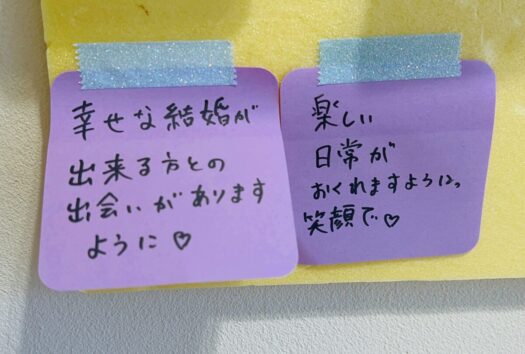 幸せな結婚が
出来る方との
出会いがあります
ように♡
楽しい
日常が
おくれますように。
笑顔で♡